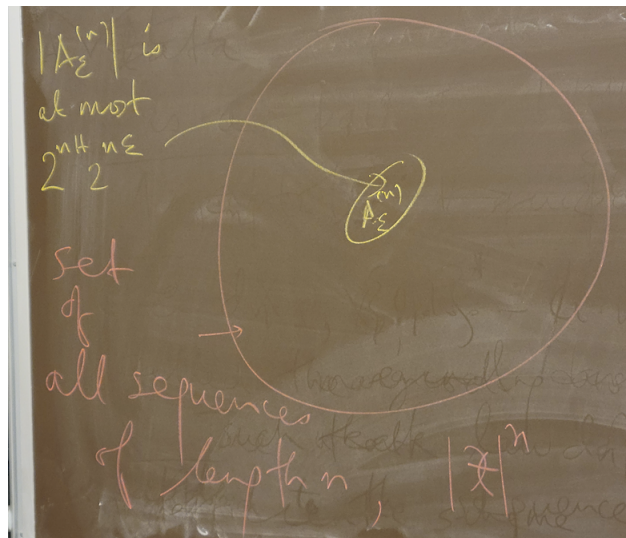 |A_ε^(n)| is
at most
2^nH 2^nε
A_ε^(n)
set
of
all sequences
of length n, |𝒳|^n